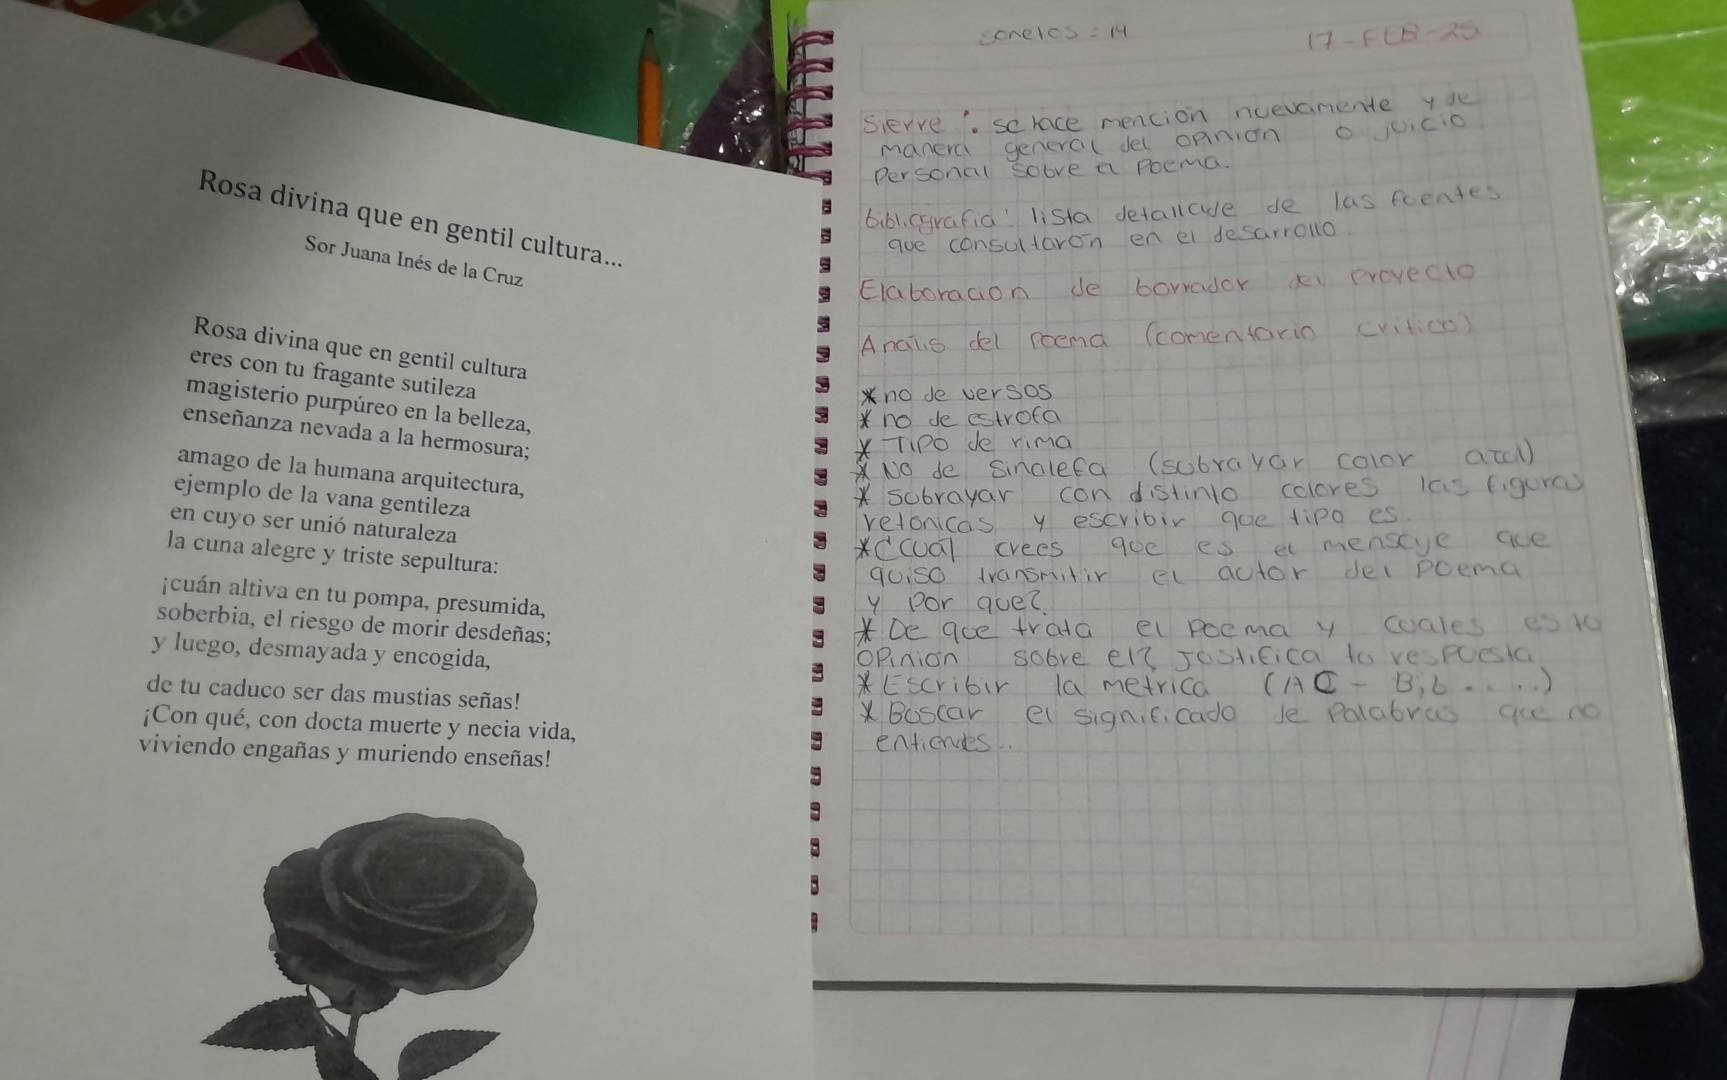 Rosa divina que en gentil cultura...
Sor Juana Inés de la Cruz
Rosa divina que en gentil cultura
eres con tu fragante sutileza
magisterio purpúreo en la belleza,
enseñanza nevada a la hermosura;
amago de la humana arquitectura,
ejemplo de la vana gentileza
en cuyo ser unió naturaleza
la cuna alegre y triste sepultura:
¡cuán altiva en tu pompa, presumida,
soberbia, el riesgo de morir desdeñas;
y luego, desmayada y encogida,
de tu caduco ser das mustias señas!
¡Con qué, con docta muerte y necia vida,
viviendo engañas y muriendo enseñas!
sonetos = 14
17-FEB-25
Sierre: se hace mención nuevamente y de
manera general del opinion o juicio
personal sobre a poema.
bibliografia: lista detallade de las fuentes
que consultarón en el desarrollo.
Elaboracion de borrador del proyecto
Analis del poema (comentario critico)
* no de versos
* no de estrofa
* Tipo de rima
* No de sinalefa (subrayar color azul)
* subrayar con distinto colores las figuras
retonicas y escribir que tipo es.
* ¿Cual crees que es el menseye que
quiso transmitir el autor del poema
y por que?
* De que trata el poema y cuales es tu
opinion sobre el? Justifica tu respuesta
* Escribir la metrica (AC - B,b.....)
* Buscar el significado de palabras que no
entiendes..